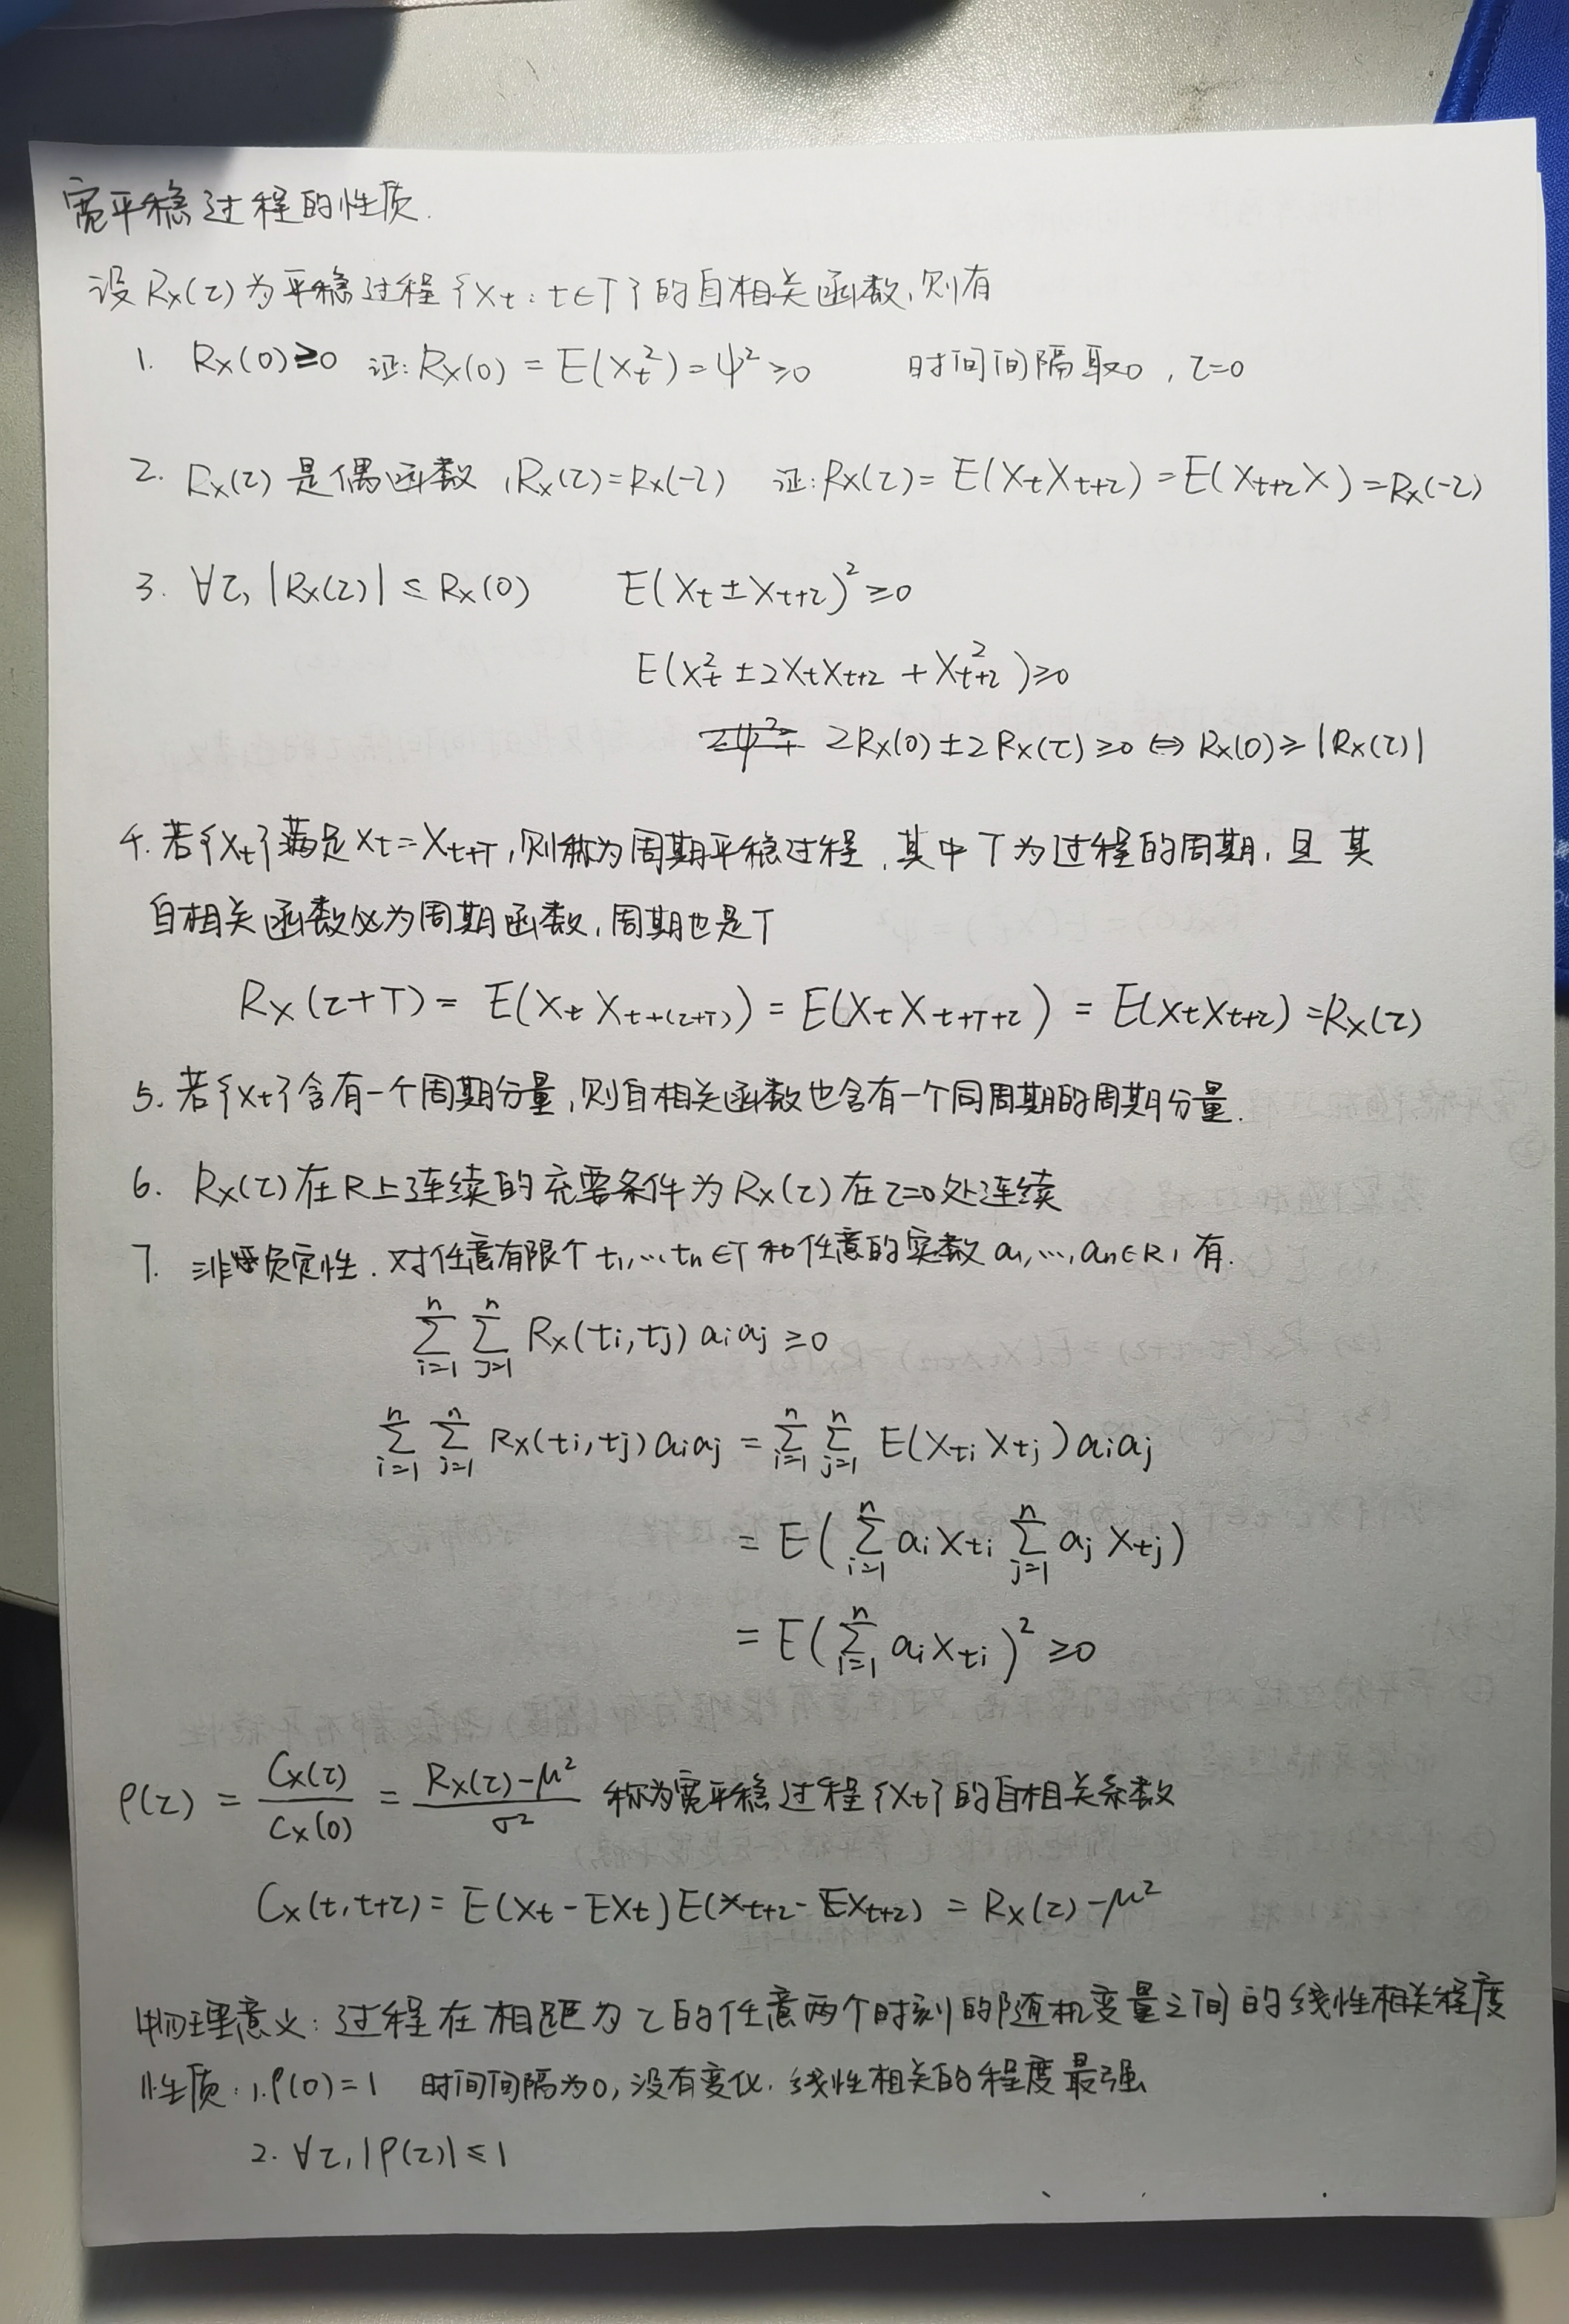 宽平稳过程的性质.
设 Rx(τ)为平稳过程{Xt: t∈T}的自相关函数,则有
1. Rx(0)≥0 证: Rx(0) = E(Xt²) = ψ² ≥0 时间间隔取0, τ=0
2. Rx(τ) 是偶函数, Rx(τ)=Rx(-τ) 证: Rx(τ) = E(XtXt+τ) = E(Xt+τX) = Rx(-τ)
3. ∀τ, |Rx(τ)| ≤ Rx(0) E(Xt±Xt+τ)² ≥0
E(Xt² ± 2XtXt+τ + Xt+τ²) ≥0
2Rx(0) ± 2Rx(τ) ≥0 ⇔ Rx(0) ≥ |Rx(τ)|
4. 若{Xt}满足Xt=Xt+T, 则称为周期平稳过程, 其中T为过程的周期, 且其
自相关函数必为周期函数, 周期也是T
Rx(τ+T) = E(Xt Xt+(τ+T)) = E(Xt Xt+T+τ) = E(XtXt+τ) = Rx(τ)
5. 若{Xt}含有一个周期分量, 则自相关函数也含有一个同周期的周期分量.
6. Rx(τ)在R上连续的充要条件为Rx(τ)在τ=0处连续
7. 非负定性. 对任意有限个 t1,…,tn∈T 和任意的实数 a1,…,an∈R, 有.
∑_{i=1}^{n} ∑_{j=1}^{n} Rx(ti,tj) aiaj ≥0
∑_{i=1}^{n} ∑_{j=1}^{n} Rx(ti,tj) aiaj = ∑_{i=1}^{n} ∑_{j=1}^{n} E(Xti Xtj) aiaj
= E( ∑_{i=1}^{n} aiXti ∑_{j=1}^{n} aj Xtj)
= E( ∑_{i=1}^{n} aiXti )² ≥0
ρ(τ) = Cx(τ)/Cx(0) = (Rx(τ)-μ²)/σ² 称为宽平稳过程{Xt}的自相关系数
Cx(t,t+τ) = E(Xt-EXt)E(Xt+τ-EXt+τ) = Rx(τ)-μ²
物理意义: 过程在相距为τ的任意两个时刻的随机变量之间的线性相关程度
性质: 1. ρ(0)=1 时间间隔为0, 没有变化. 线性相关的程度最强
2. ∀τ, |ρ(τ)|≤1